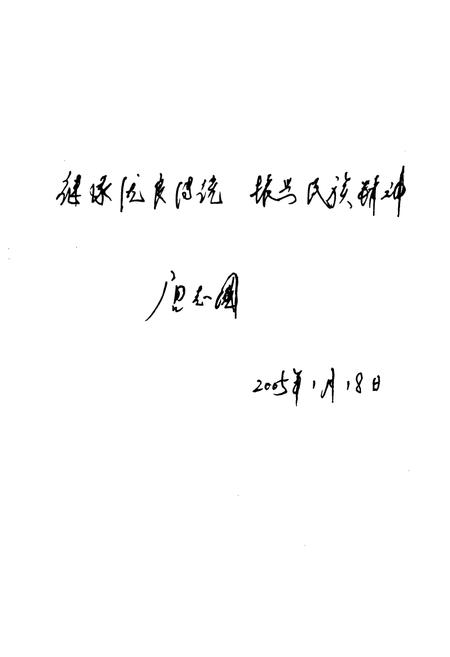 继承优良传统 振兴民族精神
唐志国
2005年1月18日